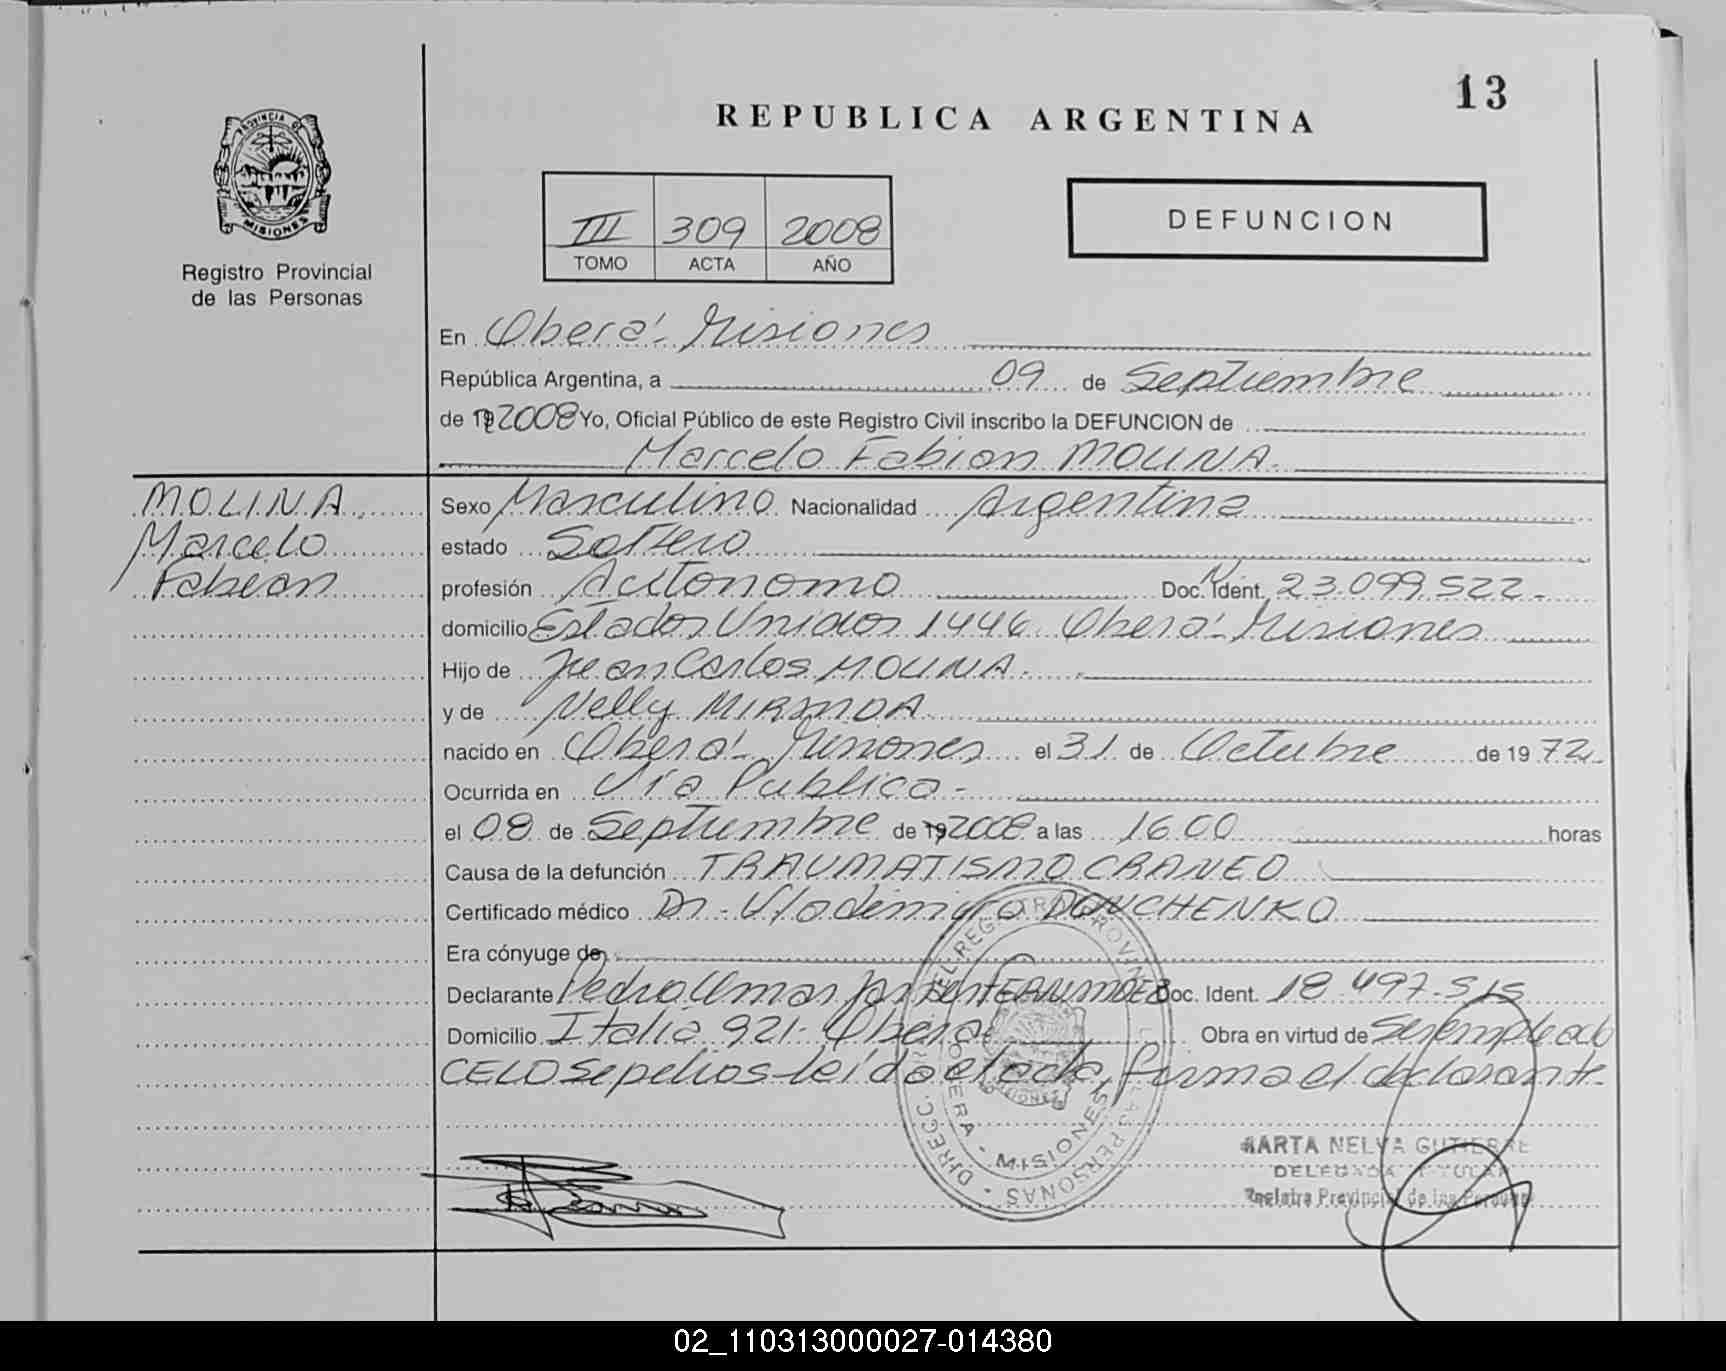 13
REPUBLICA ARGENTINA
PROVINCIA DE
MISIONES
Registro Provincial
de las Personas
III 309 2008
TOMO ACTA AÑO
DEFUNCION
En Oberá - Misiones
República Argentina, a 09 de Septiembre
de 19 2008 Yo, Oficial Público de este Registro Civil inscribo la DEFUNCION de
Marcelo Fabian MOLINA.
MOLINA
Marcelo
Fabian
Sexo Masculino Nacionalidad Argentina
estado Soltero
profesión Autonomo Doc. Ident. 23.099.522-
domicilio Estados Unidos 1446 Oberá - Misiones
Hijo de Juan Carlos MOLINA.
y de Nelly MIRANDA
nacido en Oberá - Misiones el 31 de Octubre de 1972
Ocurrida en Vía Publica -
el 08 de Septiembre de 19 2008 a las 16 00 horas
Causa de la defunción TRAUMATISMO CRANEO
Certificado médico Dr. Vlodemiro DOUCHENKO
Era cónyuge de
Declarante Pedro Omar FERNANDEZ Doc. Ident. 18 497.515
Domicilio Italia 921- Oberá Obra en virtud de Ser empleado
CELO Sepelios - leída el acta, firma el declarante.
DIRECC. DEL REGISTRO PROV. DE LAS PERSONAS
OBERA - MISIONES
MARTA NELVA GUTIERRE
DELEGADA TITULAR
Registro Provincial de las Personas
02_110313000027-014380